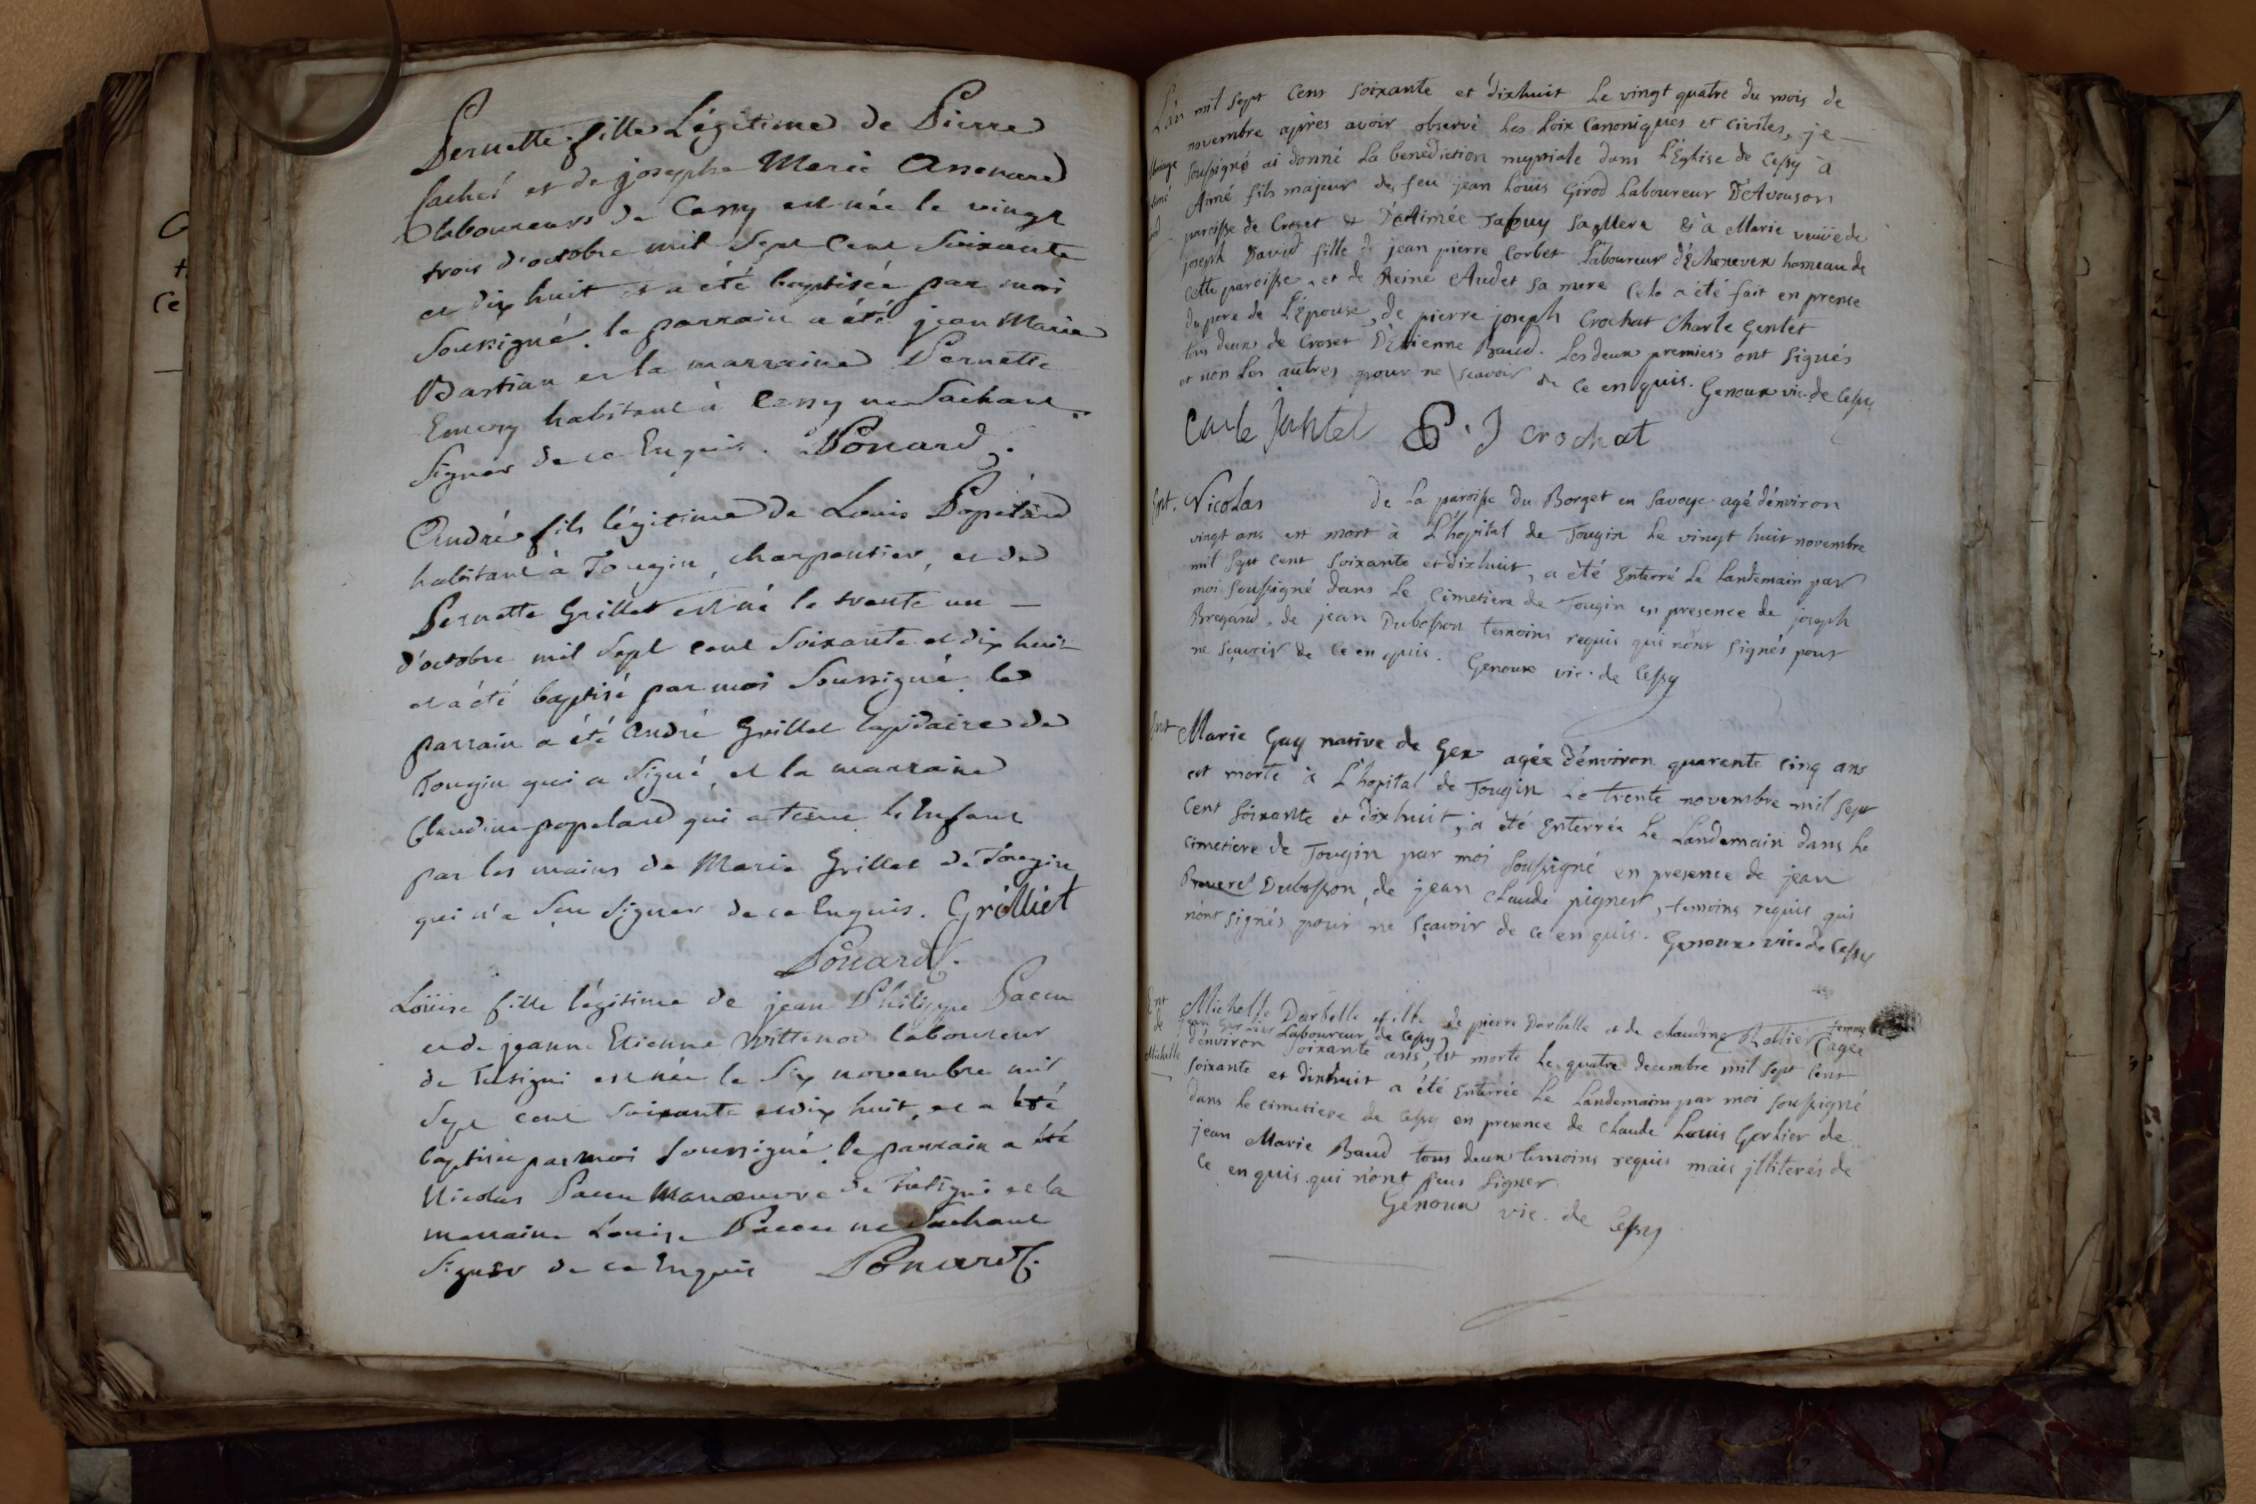 Pernette fille Légitime de Pierre
et de josephe Marie
laboureurs de Cessy est née le vingt
trois d'octobre mil Sept Cent Soixante
et dix huit et a été baptisée par moi
Soussigné. le parrain a été jean Marie
Bastian et la marraine Pernette
Emery habitant à Cessy ne Sachant
Signer de ce Enquis. Ponard
André fils légitime de Louis Popelard
habitant à Tougin, charpentier, et de
Pernette Grillet est né le trente un
d'octobre mil Sept cent Soixante et dix huit
et a été baptisé par moi Soussigné le
parrain a été André Grillet lapidaire de
Tougin qui a Signé, et la marraine
Claudine popelard qui a tenu l'Enfant
par les mains de Marie Grillet de Tougin
qui n'a Seu Signer de ce Enquis. Grilliet
Ponard.
Loüise fille légitime de jean Philippe
et de jeanne Etienne Wittenor laboureur
de est née le Six novembre mil
Sept cent Soixante et dix huit, et a été
baptisée par moi Soussigné. le parrain a été
Nicolas manœuvre de et la
marraine Louise ne Sachant
Signer de ce Enquis Ponard.
L'an mil Sept Cent Soixante et dixhuit Le vingt quatre du mois de
novembre après avoir observé Les Loix Canoniques et Civiles, je
Mariage
Soussigné ai donné La benediction nuptiale dans L'Eglise de Cessy à
Aimé fils majeur de feu jean Louis Girod Laboureur D'Avouson
paroisse de Crozet et D'Aimée Sa Mere & à Marie veuüe de
joseph David fille de jean pierre Corbet Laboureur d'Echenevex hameau de
Cette paroisse, et de Reine Audet Sa mere Cela a été fait en presce
du pere de L'Epouse, de pierre joseph Crochat Charle Gentet
tous deux de Croset D'Etienne Baud. Les deux premiers ont Signés
et non Les autres pour ne Scavoir de Ce enquis. Genoux vic. de Cessy
Carle Jantet P. J crochat
Ent. Nicolas de La paroisse du Borget en Savoye agé d'environ
vingt ans est mort à L'hopital de Tougin Le vingt huit novembre
mil Sept Cent Soixante et dixhuit, a été Enterré Le Landemain par
moi Soussigné dans Le Cimetiere de Tougin en presence de joseph
Bregand, de jean Dubosson temoins requis qui n'ont Signés pour
ne Sçavoir de Ce en quis. Genoux vic. de Cessy
Ent Marie Gay native de Gex agée d'environ quarente Cinq ans
est morte à L'hopital de Tougin Le trente novembre mil Sept
Cent Soixante et dixhuit, a été Enterrée Le Landemain dans Le
Cimetiere de Tougin par moi Soussigné en presence de jean
Dubosson, de jean Claude pigner, temoins requis qui
n'ont Signés pour ne Sçavoir de Ce en quis. Genoux vic. de Cessy
Ent
de
Michelle
Michelle Darbelle fille de pierre Darbelle et de Claudine femme
Laboureur de Cessy, agée
d'environ Soixante ans, est morte Le quatre decembre mil Sept Cent
Soixante et dixhuit a été Enterrée Le Landemain par moi Soussigné
dans Le Cimetiere de Cessy en presence de Claude Louis Gerlier de
jean Marie Baud tous deux temoins requis mais jlliterés de
Ce enquis qui n'ont Seus Signer.
Genoux vic. de Cessy